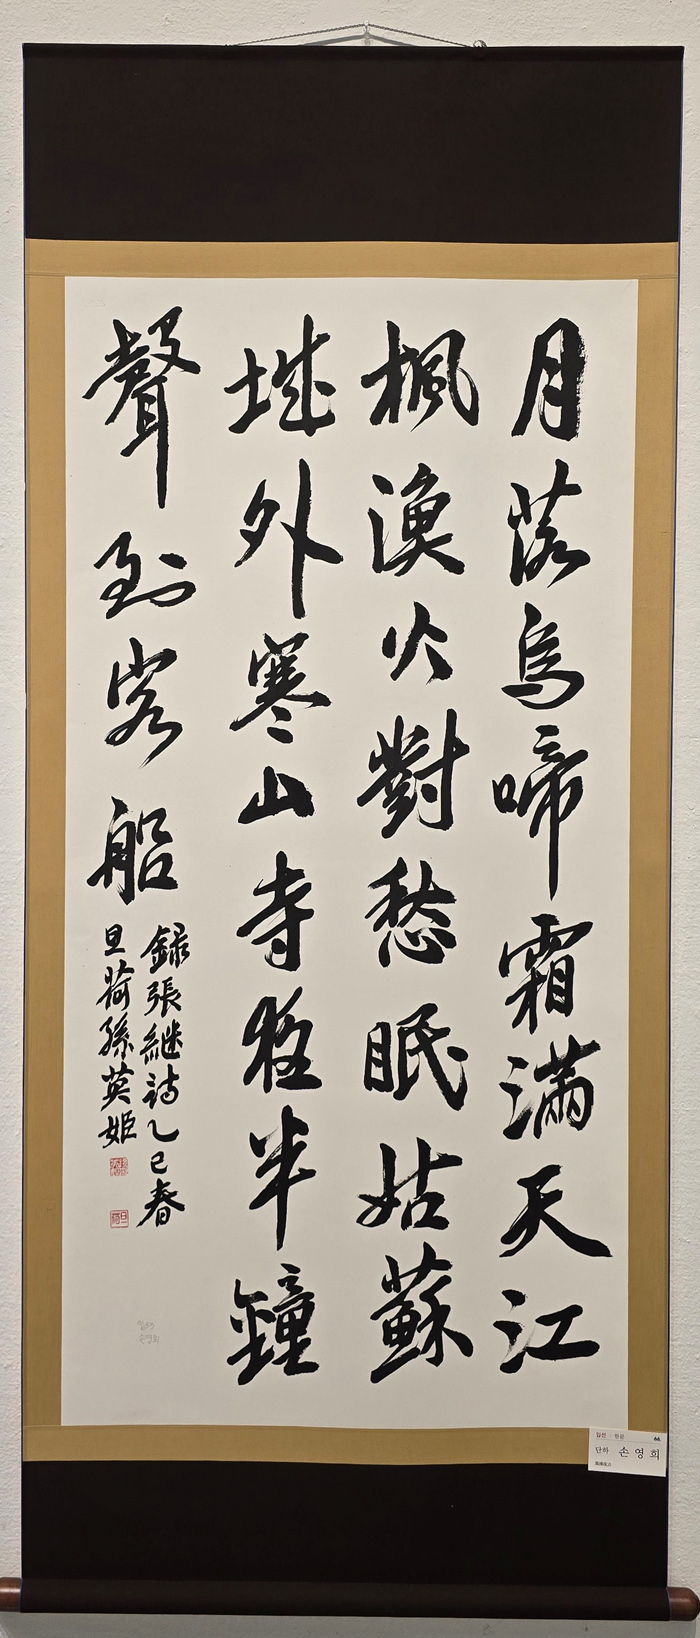 月落烏啼霜滿天江
楓漁火對愁眠姑蘇
城外寒山寺夜半鐘
聲到客船
録張継詩乙巳春
旦荷孫英姬
입선 한문
단하 손영희